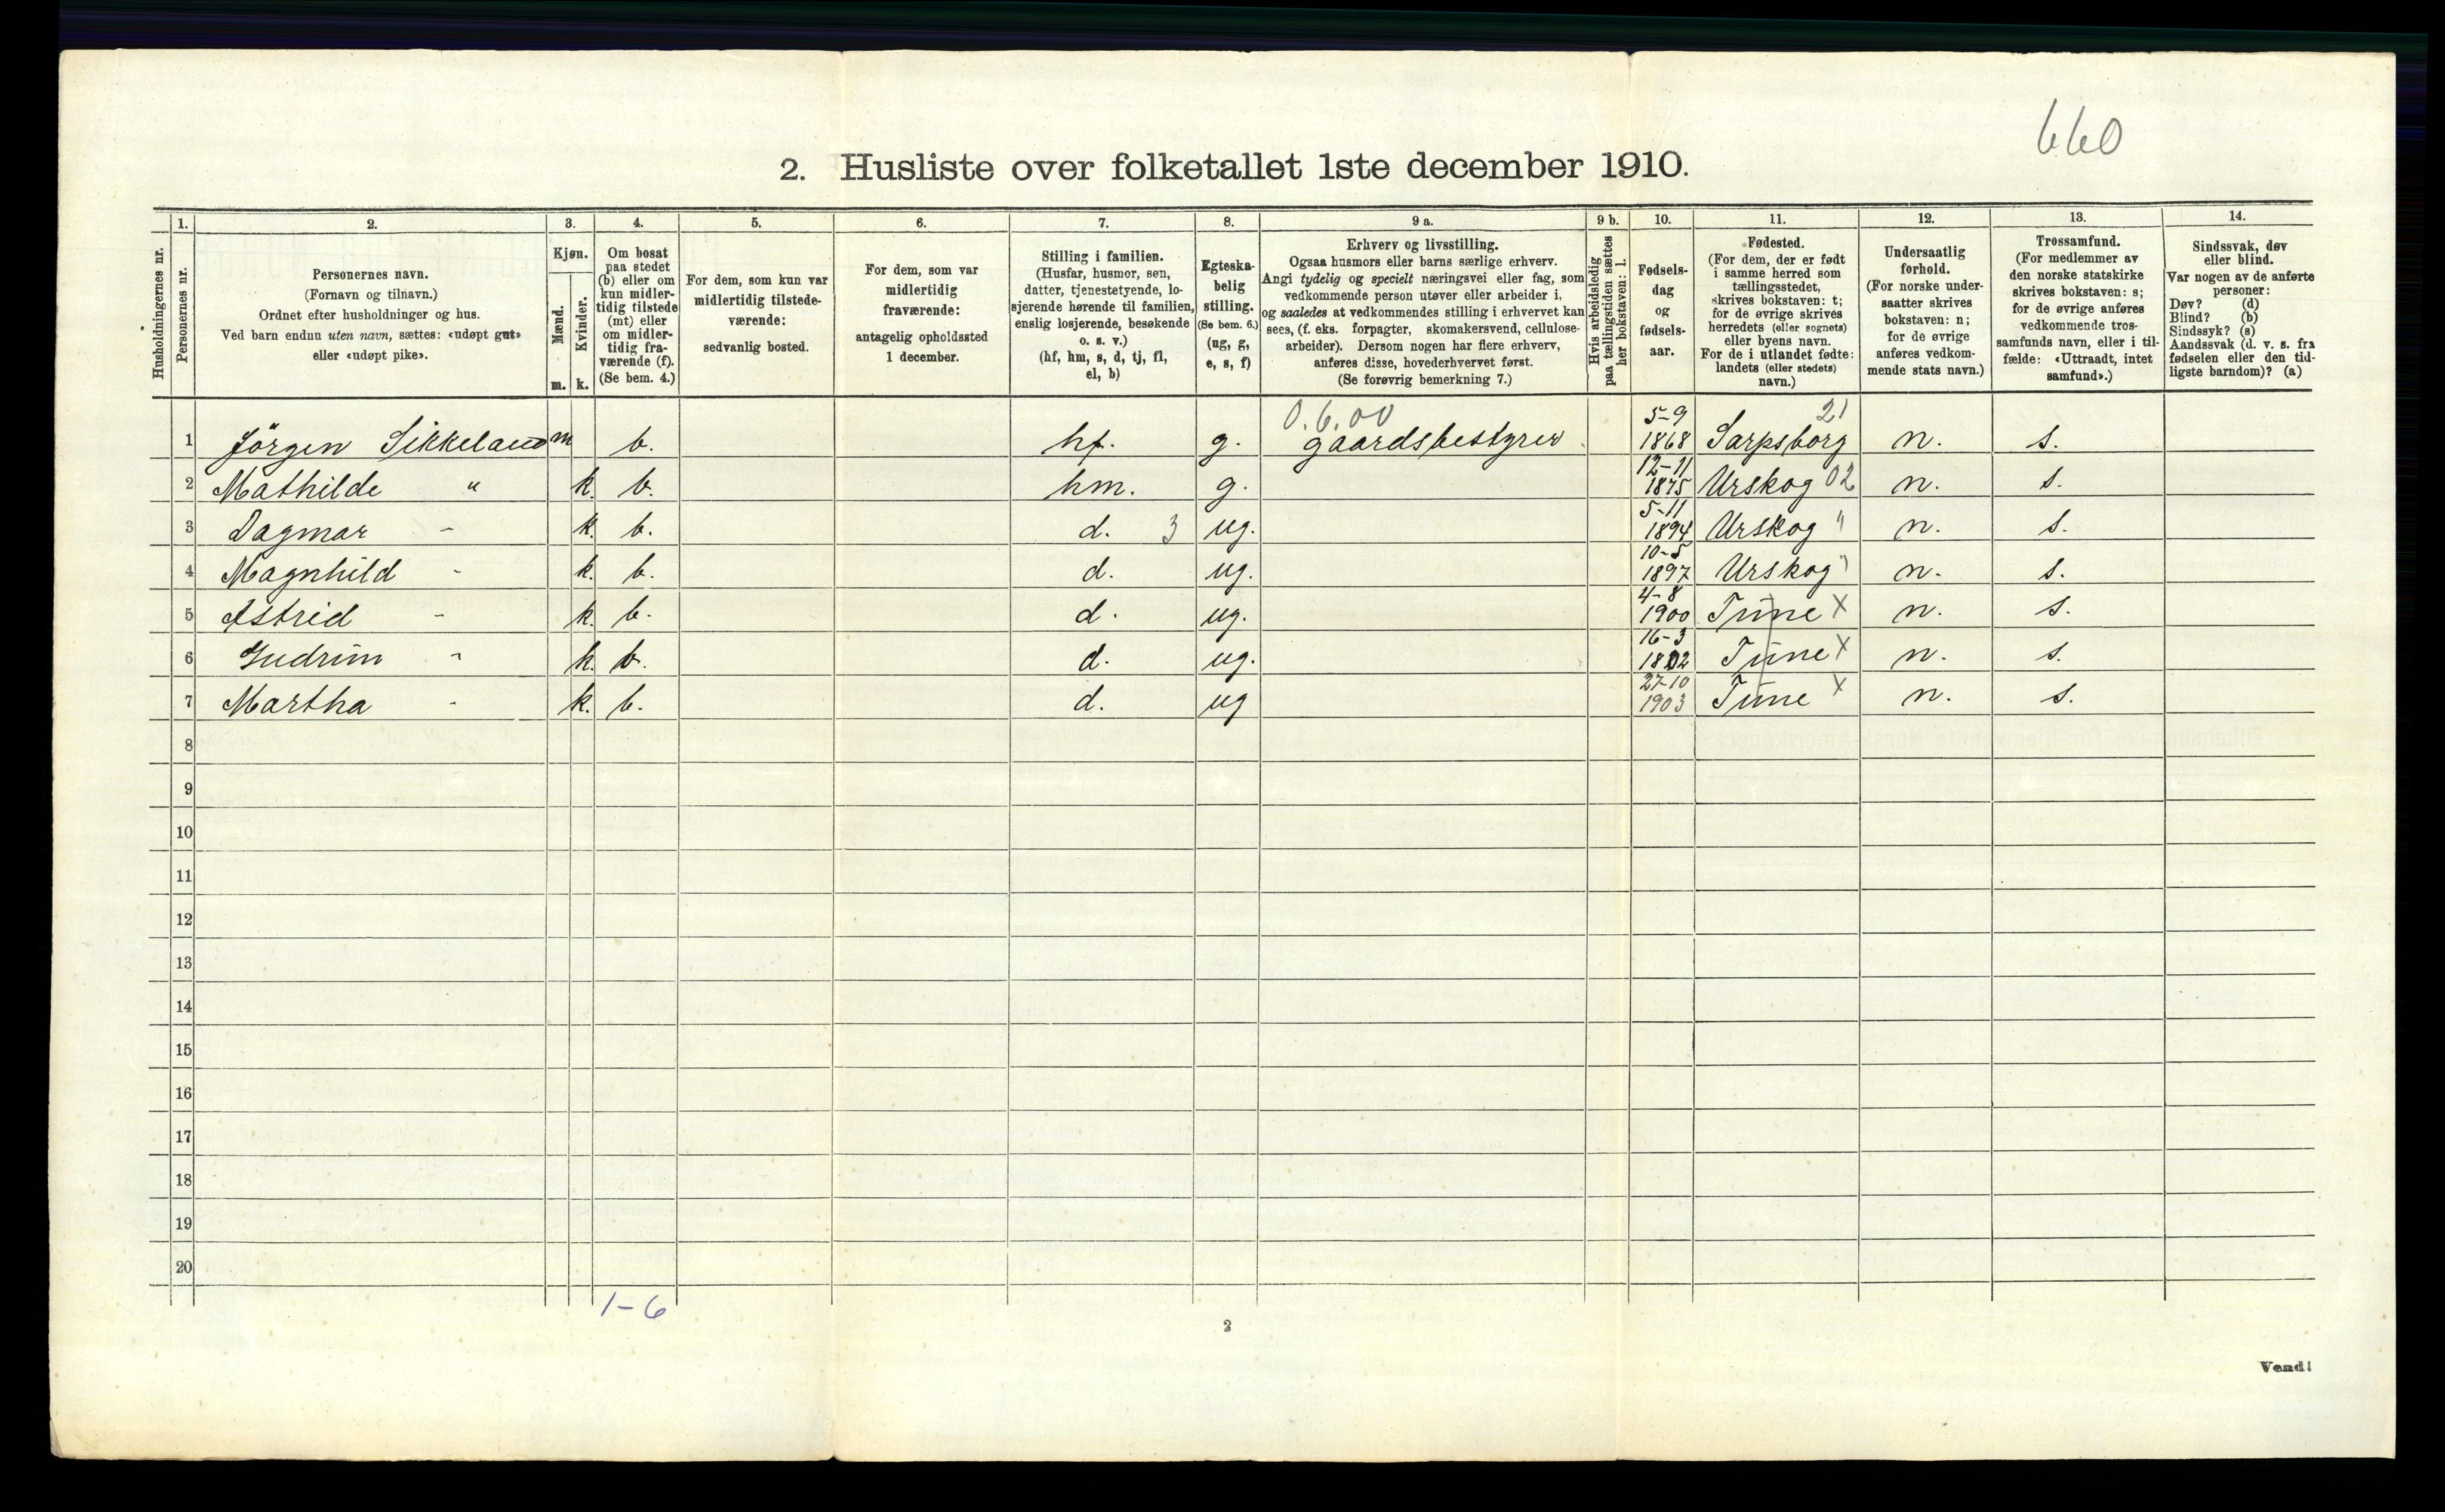 660
2. Husliste over folketallet 1ste december 1910.
Husholdningernes nr.
1.
Personernes nr.
2.
Personernes navn.
(Fornavn og tilnavn.)
Ordnet efter husholdninger og hus.
Ved barn endnu uten navn, sættes: «udøpt gut»
eller «udøpt pike».
3.
Kjøn.
Mænd.
Kvinder.
m. k.
4.
Om bosat
paa stedet
(b) eller om
kun midler-
tidig tilstede
(mt) eller
om midler-
tidig fra-
værende (f).
(Se bem. 4.)
5.
For dem, som kun var
midlertidig tilstede-
værende:
sedvanlig bosted.
6.
For dem, som var
midlertidig
fraværende:
antagelig opholdssted
1 december.
7.
Stilling i familien.
(Husfar, husmor, søn,
datter, tjenestetyende, lo-
sjerende hørende til familien,
enslig losjerende, besøkende
o. s. v.)
(hf, hm, s, d, tj, fl,
el, b)
8.
Egteska-
belig
stilling.
(Se bem. 6.)
(ug, g,
e, s, f)
9 a.
Erhverv og livsstilling.
Ogsaa husmors eller barns særlige erhverv.
Angi tydelig og specielt næringsvei eller fag, som
vedkommende person utøver eller arbeider i,
og saaledes at vedkommendes stilling i erhvervet kan
sees, (f. eks. forpagter, skomakersvend, cellulose-
arbeider). Dersom nogen har flere erhverv,
anføres disse, hovederhvervet først.
(Se forøvrig bemerkning 7.)
9 b.
Hvis arbeidsledig
paa tællingstiden sættes
her bokstaven: l.
10.
Fødsels-
dag
og
fødsels-
aar.
11.
Fødested.
(For dem, der er født
i samme herred som
tællingsstedet,
skrives bokstaven: t;
for de øvrige skrives
herredets (eller sognets)
eller byens navn.
For de i utlandet fødte:
landets (eller stedets)
navn.)
12.
Undersaatlig
forhold.
(For norske under-
saatter skrives
bokstaven: n;
for de øvrige
anføres vedkom-
mende stats navn.)
13.
Trossamfund.
(For medlemmer av
den norske statskirke
skrives bokstaven: s;
for de øvrige anføres
vedkommende tros-
samfunds navn, eller i til-
fælde: «Uttraadt, intet
samfund».)
14.
Sindssvak, døv
eller blind.
Var nogen av de anførte
personer:
Døv? (d)
Blind? (b)
Sindssyk? (s)
Aandssvak (d. v. s. fra
fødselen eller den tid-
ligste barndom)? (a)
0.6.00 5-9 21
1 Jörgen Sikkeland m b. hf. g. gaardsbestyrer 1868 Sarpsborg n. s.
12-11
2 Mathilde " k. b. hm. g. 1875 Urskog 02 n. s.
5-11
3 Dagmar - k. b. d. 3 ug. 1894 Urskog " n. s.
10-5
4 Magnhild - k. b. d. ug. 1897 Urskog " n. s.
4-8
5 Astrid - k. b. d. ug. 1900 Tune x n. s.
16-3
6 Gudrun - k. b. d. ug. Tune x n. s.
27-10
7 Martha - k. b. d. ug 1903 Tune x n. s.
8
9
10
11
12
13
14
15
16
17
18
19
20
1-6
2
Vend!